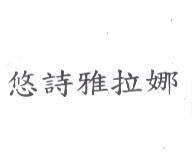 悠詩雅拉娜